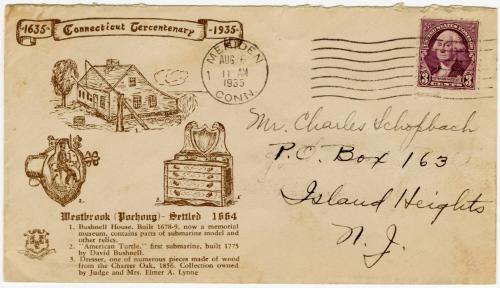 -1635- Connecticut Tercentenary -1935-
MERIDEN
AUG 6
11 AM
1935
CONN.
1
3
Mr. Charles Schopbach
P.C. Box 163
Island Heights
N. J.
1.
2.
3.
Westbrook (Pochong) - Settled 1664
1. Bushnell House. Built 1678-9, now a memorial
museum, contains parts of submarine model and
other relics.
2. "American Turtle," first submarine, built 1775
by David Bushnell.
3. Dresser, one of numerous pieces made of wood
from the Charter Oak, 1856. Collection owned
by Judge and Mrs. Elmer A. Lynne